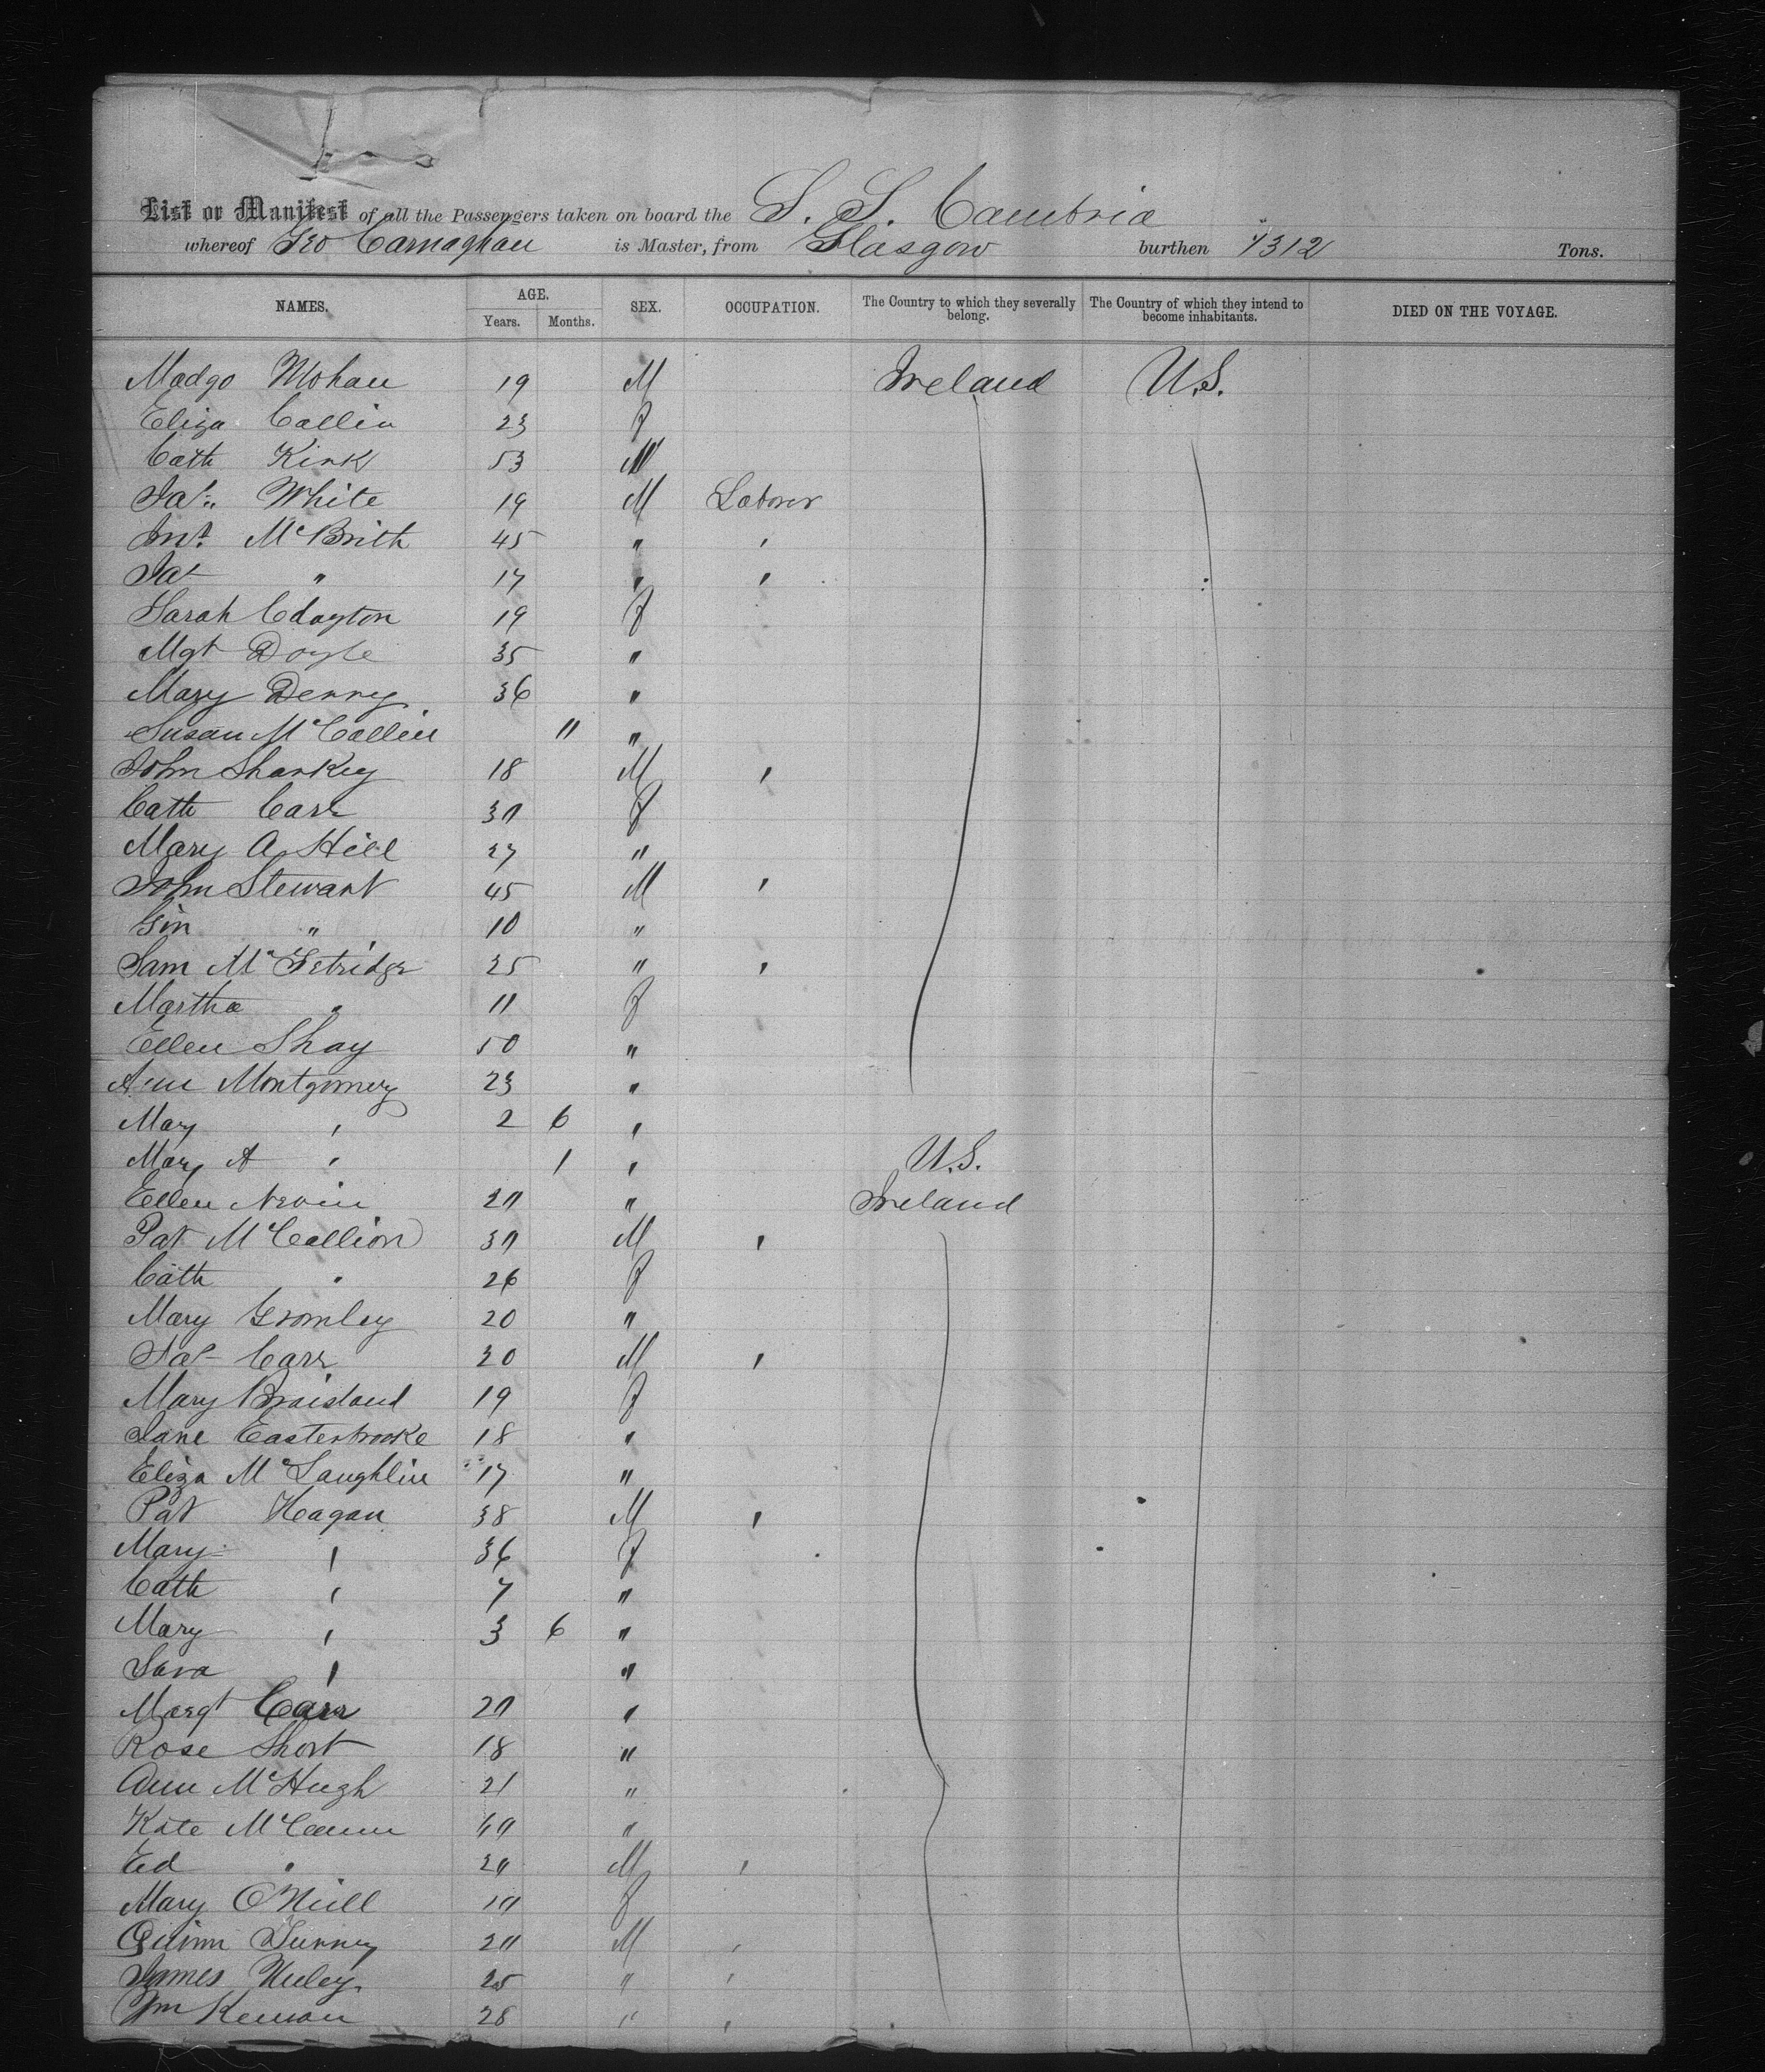 List or Manifest of all the Passengers taken on board the S. S. Cambria
whereof Geo Carnaghan is Master, from Glasgow burthen 1312 Tons.
NAMES. AGE. SEX. OCCUPATION. The Country to which they severally belong. The Country of which they intend to become inhabitants. DIED ON THE VOYAGE.
Years. Months.
Madgo Mohan 19 M Ireland U.S.
Eliza Callin 23 F
Cath Kirk 53
Jas. White 19 M Laborer
Jno. McBrith 45 " '
Jas " 17 " '
Sarah Clayton 19 F
Mgt Doyle 35 "
Mary Denny 36 "
Susan McCallin 11 "
John Sharkey 18 M '
Cath Carr 30 F
Mary A Hill 27 "
John Stewart 45 M '
" 10 "
Sam McFetridge 25 " '
Martha " 11 F
Ellen Shay 50 "
Ann Montgomery 23 "
Mary ' 2 6 '
Mary A ' 1 ' U.S.
Ellen Nevin 20 " Ireland
Pat McCallion 30 M '
Cath " 26 F
Mary Gromley 20 "
Jas Carr 30 M '
Mary Braisland 19 F
Jane Easterbrooke 18 "
Eliza McLaughlin 17 "
Pat Hagan 38 M '
Mary ' 36 F
Cath ' 7 "
Mary ' 3 6 "
Sara ' "
Margt Carr 20 '
Rose Short 18 "
Ann McHugh 21 "
Kate McCann "
Ed " 20 M '
Mary O'Neill F
Quinn M '
James 25 " '
Wm 28 " '